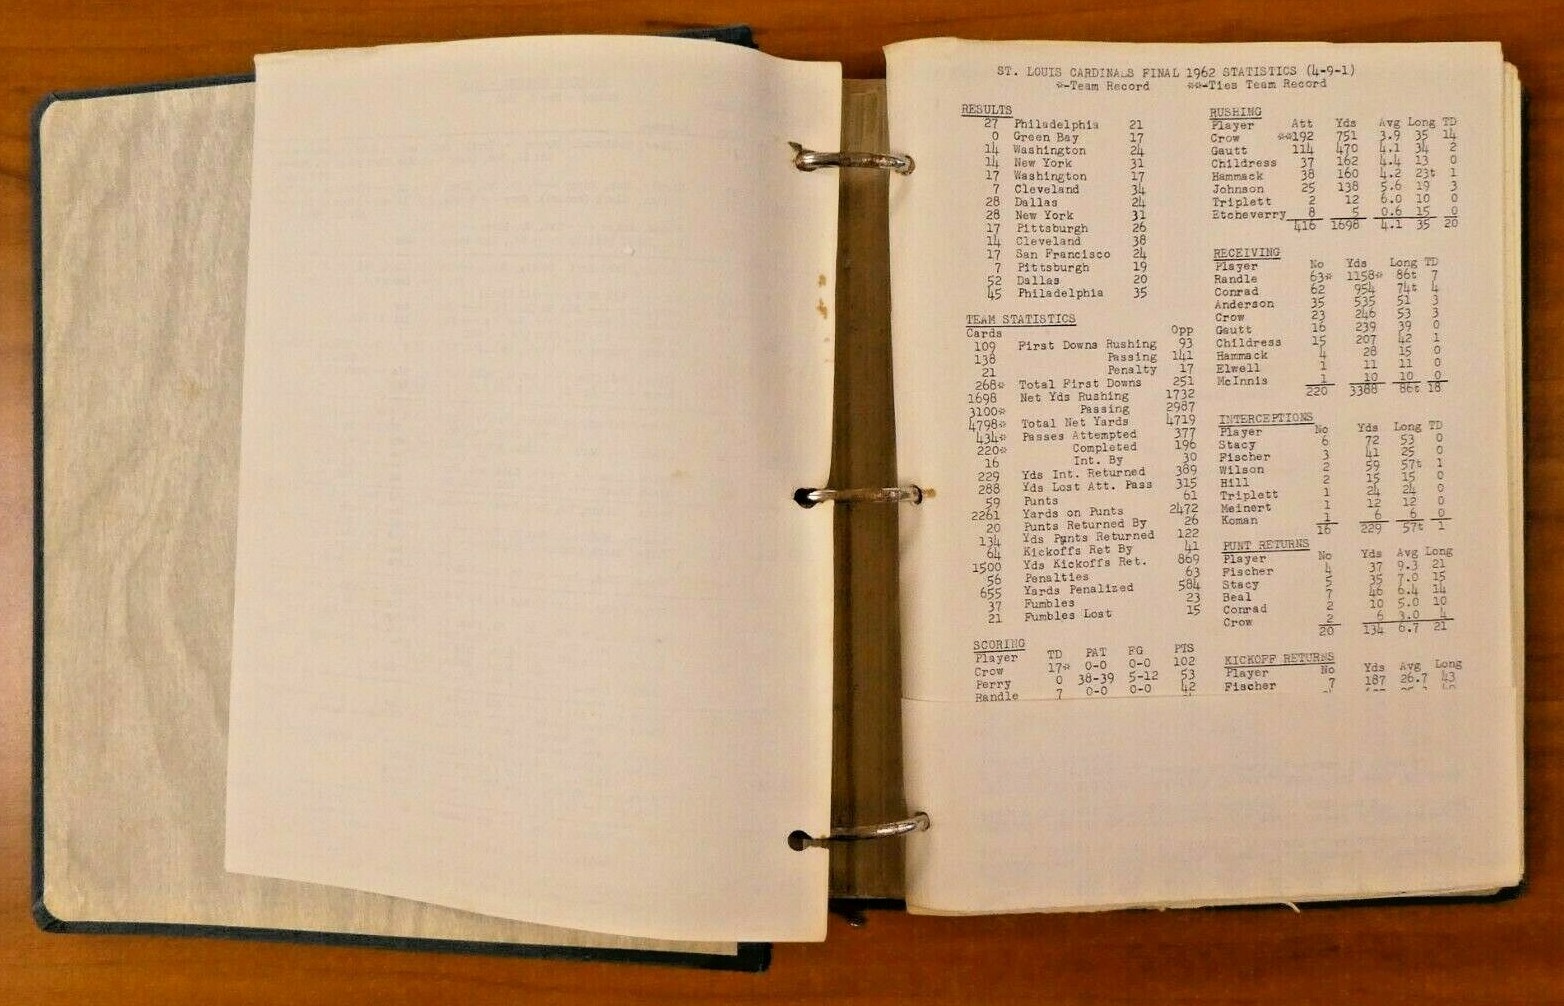 ST. LOUIS CARDINALS FINAL 1962 STATISTICS (4-9-1)
*-Team Record **-Ties Team Record
RESULTS
27 Philadelphia 21
0 Green Bay 17
14 Washington 24
14 New York 31
17 Washington 17
7 Cleveland 34
28 Dallas 24
28 New York 31
17 Pittsburgh 26
14 Cleveland 38
17 San Francisco 24
7 Pittsburgh 19
52 Dallas 20
45 Philadelphia 35
TEAM STATISTICS
Cards Opp
109 First Downs Rushing 93
138 Passing 141
21 Penalty 17
268* Total First Downs 251
1698 Net Yds Rushing 1732
3100* Passing 2987
4798* Total Net Yards 4719
434* Passes Attempted 377
220* Completed 196
16 Int. By 30
229 Yds Int. Returned 389
288 Yds Lost Att. Pass 315
59 Punts 61
2261 Yards on Punts 2472
20 Punts Returned By 26
134 Yds Punts Returned 122
64 Kickoffs Ret By 41
1500 Yds Kickoffs Ret. 869
56 Penalties 63
655 Yards Penalized 584
37 Fumbles 23
21 Fumbles Lost 15
SCORING
Player TD PAT FG PTS
Crow 17* 0-0 0-0 102
Perry 0 38-39 5-12 53
Randle 7 0-0 0-0 42
RUSHING
Player Att Yds Avg Long TD
Crow **192 751 3.9 35 14
Gautt 114 470 4.1 34 2
Childress 37 162 4.4 13 0
Hammack 38 160 4.2 23t 1
Johnson 25 138 5.6 19 3
Triplett 2 12 6.0 10 0
Etcheverry 8 5 0.6 15 0
416 1698 4.1 35 20
RECEIVING
Player No Yds Long TD
Randle 63* 1158* 86t 7
Conrad 62 954 74t 4
Anderson 35 535 51 3
Crow 23 246 53 3
Gautt 16 239 39 0
Childress 15 207 42 1
Hammack 4 28 15 0
Elwell 1 11 11 0
McInnis 1 10 10 0
220 3388 86t 18
INTERCEPTIONS
Player No Yds Long TD
Stacy 6 72 53 0
Fischer 3 41 25 0
Wilson 2 59 57t 1
Hill 2 15 15 0
Triplett 1 24 24 0
Meinert 1 12 12 0
Koman 1 6 6 0
16 229 57t 1
PUNT RETURNS
Player No Yds Avg Long
Fischer 4 37 9.3 21
Stacy 5 35 7.0 15
Beal 7 46 6.4 14
Conrad 2 10 5.0 10
Crow 2 6 3.0 4
20 134 6.7 21
KICKOFF RETURNS
Player No Yds Avg Long
Fischer 7 187 26.7 43